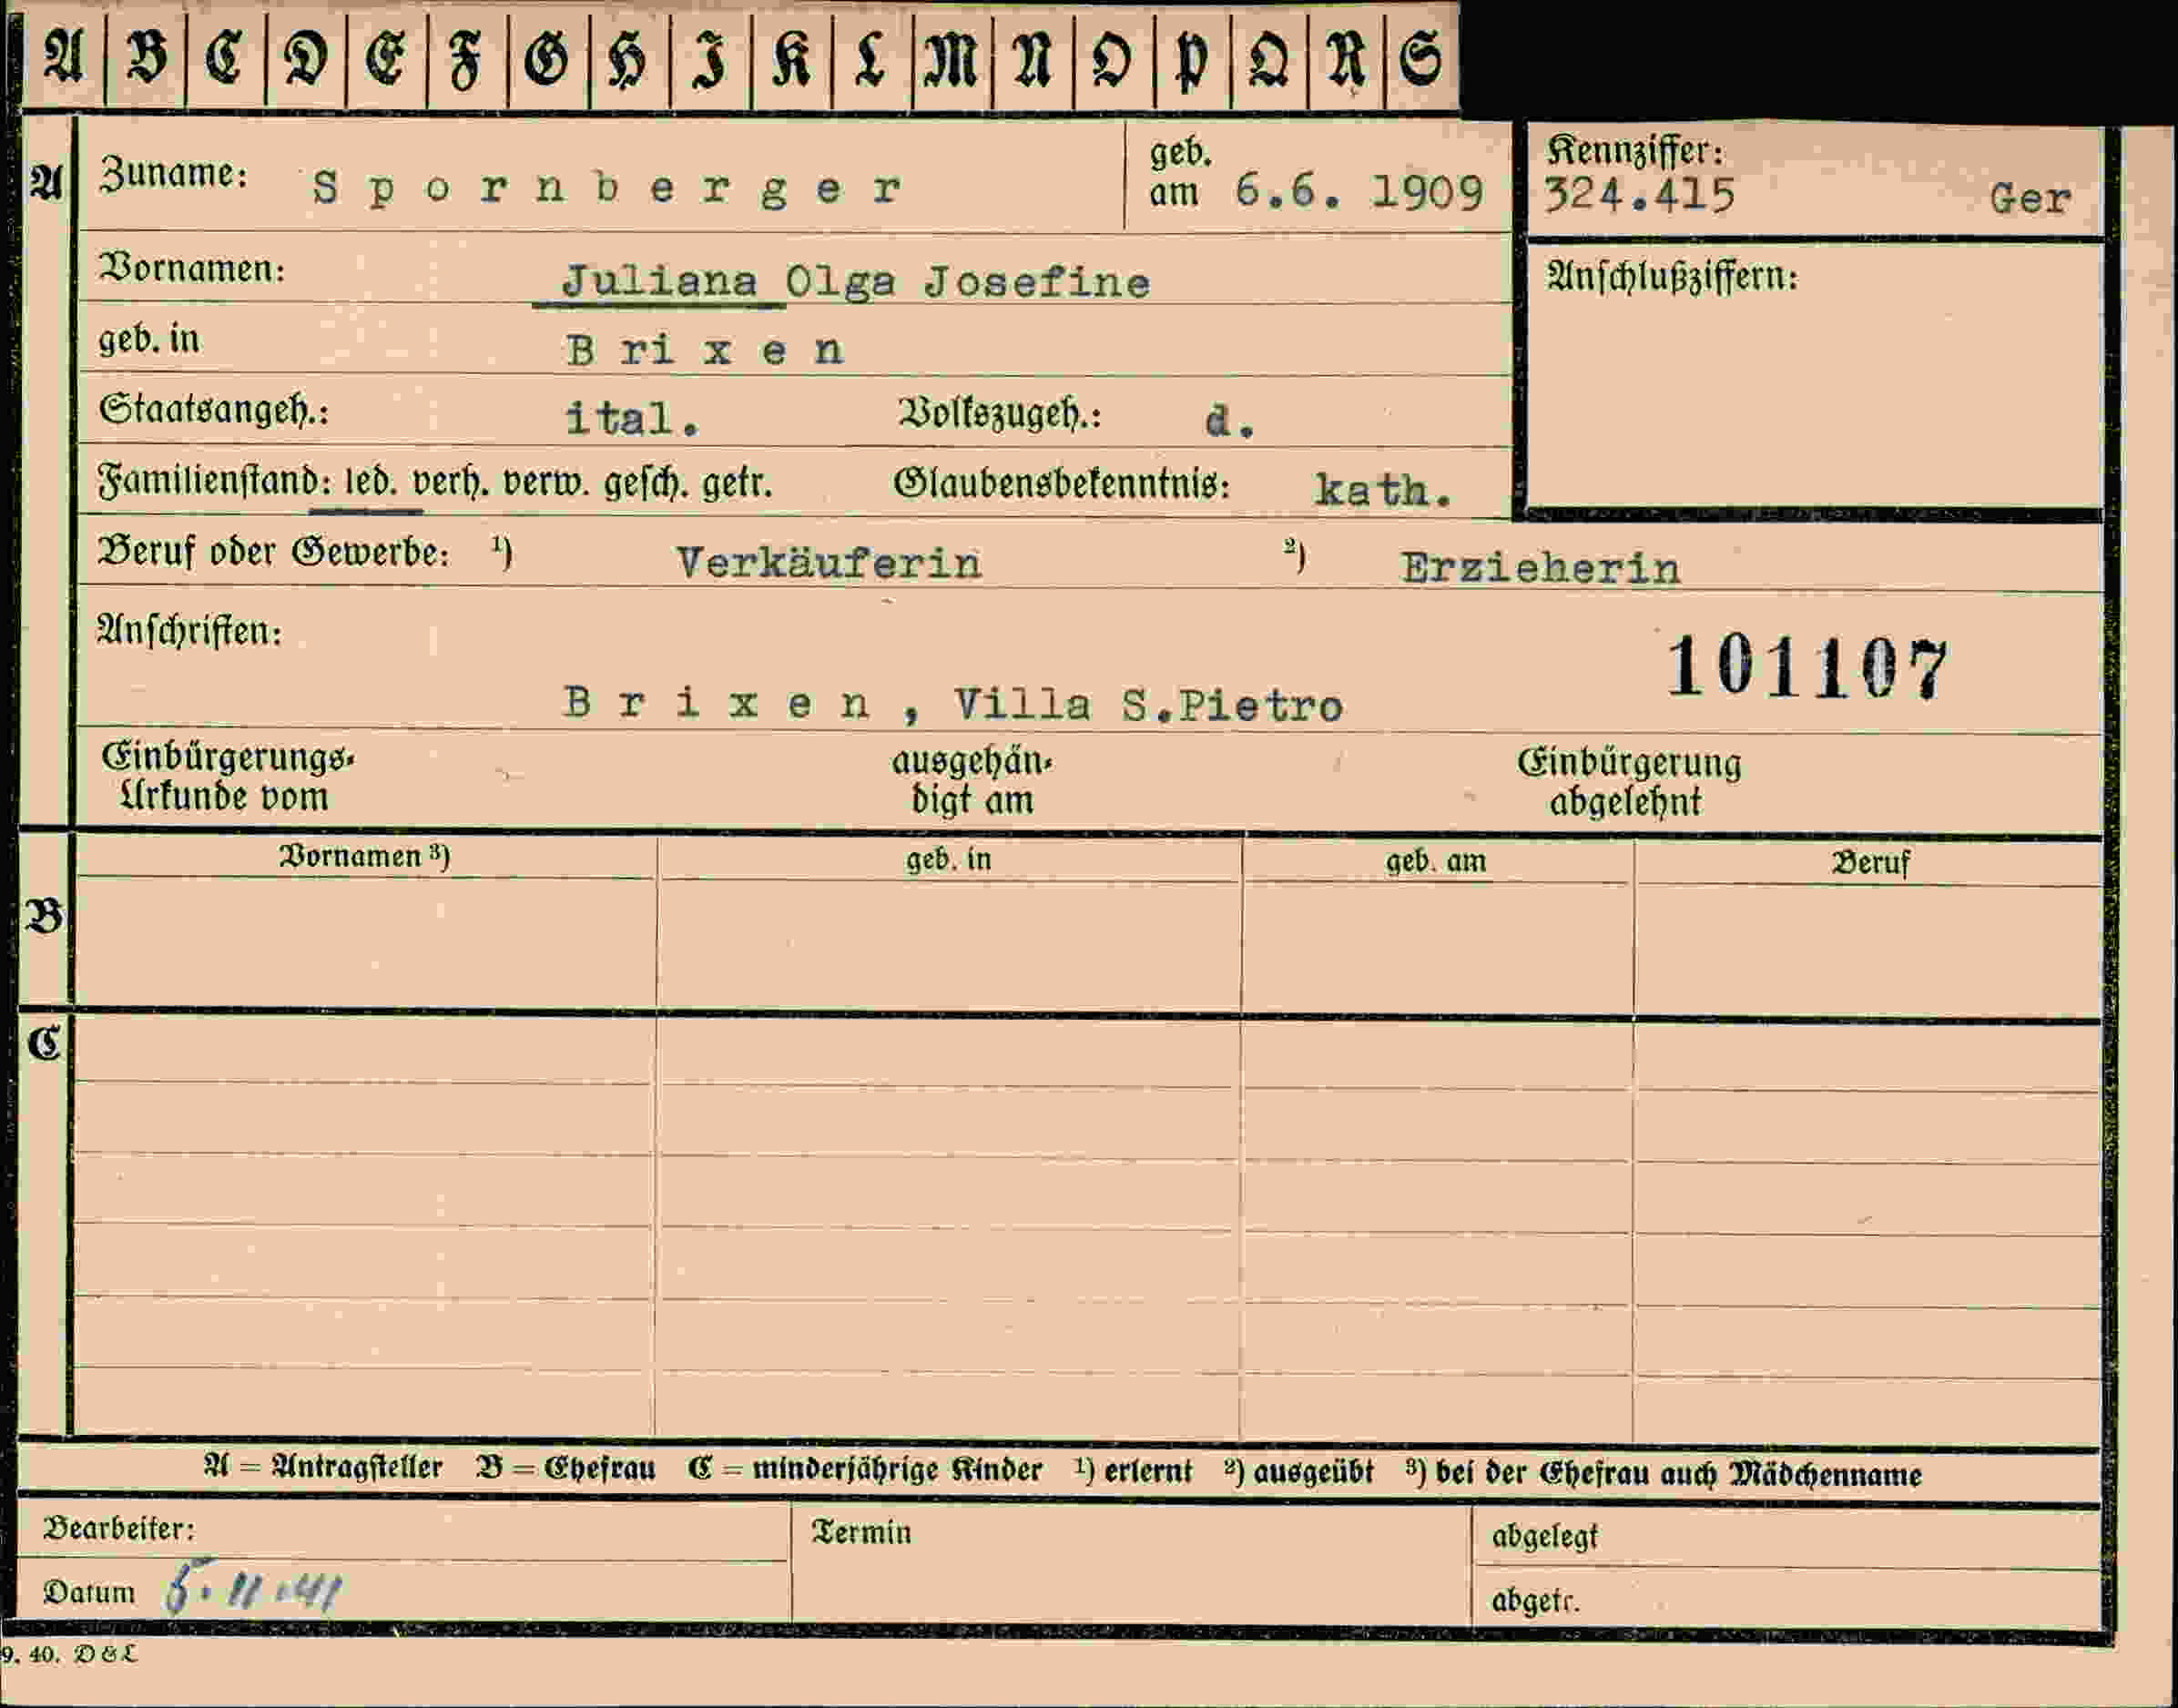 A B C D E F G H I K L M N O P Q R S
A Zuname: Spornberger geb. am 6.6. 1909 Kennziffer: 324.415 Ger
Vornamen: Juliana Olga Josefine Anschlußziffern:
geb. in Brixen
Staatsangeh.: ital. Volkszugeh.: d.
Familienstand: led. verh. verw. gesch. getr. Glaubensbekenntnis: kath.
Beruf oder Gewerbe: 1) Verkäuferin 2) Erzieherin
Anschriften: 101107
Brixen, Villa S.Pietro
Einbürgerungs- ausgehän- Einbürgerung
Urkunde vom digt am abgelehnt
Vornamen 3) geb. in geb. am Beruf
B
C
A = Antragsteller B = Ehefrau C = minderjährige Kinder 1) erlernt 2) ausgeübt 3) bei der Ehefrau auch Mädchenname
Bearbeiter: Termin abgelegt
Datum 5.11.41 abgetr.
9. 40. D & L